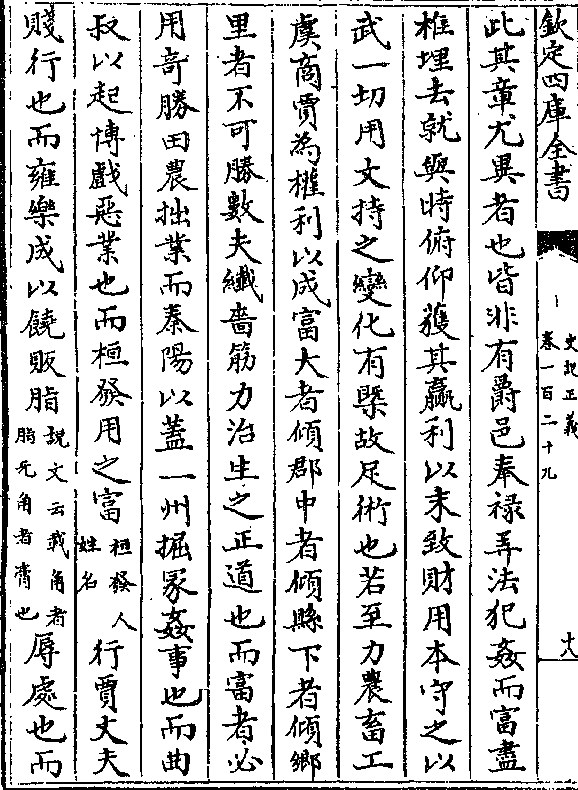 欽定四庫全書
史記正義
卷一百二十九
十八
此其章尤異者也皆非有爵邑奉祿弄法犯姦而富盡
椎埋去就與時俯仰獲其贏利以末致財用本守之以
武一切用文持之變化有槩故足術也若至力農畜工
虞商賈為權利以成富大者傾郡中者傾縣下者傾鄉
里者不可勝數夫纖嗇筋力治生之正道也而富者必
用奇勝田農拙業而秦陽以蓋一州掘冢姦事也而曲
叔以起博戲惡業也而桓發用之富桓發人姓名行賈丈夫
賤行也而雍樂成以饒販脂說文云戴角者脂无角者膏也辱處也而